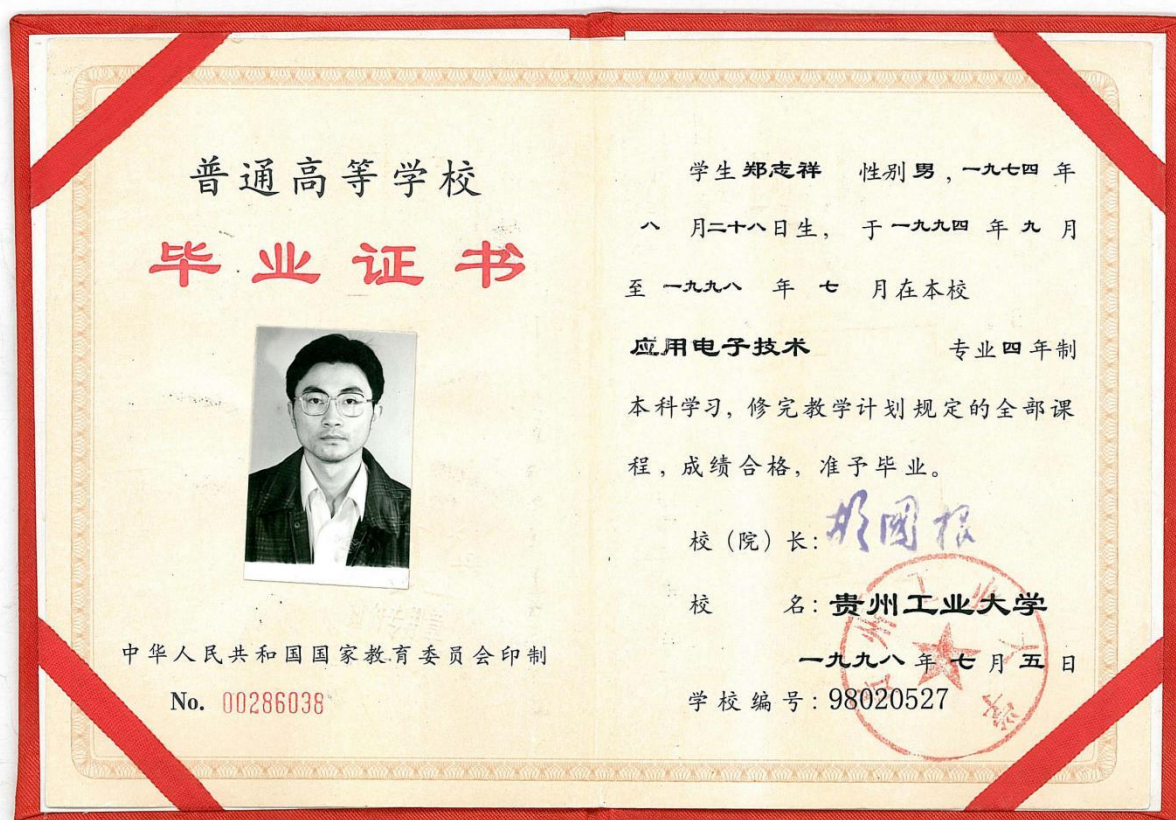 普通高等学校
毕业证书
中华人民共和国国家教育委员会印制
No. 00286038
学生郑志祥 性别男，一九七四年
八月二十八日生，于一九九四年九月
至一九九八年七月在本校
应用电子技术 专业四年制
本科学习，修完教学计划规定的全部课
程，成绩合格，准予毕业。
校（院）长：
校 名：贵州工业大学
一九九八年七月五日
学校编号：98020527
贵州工业大学